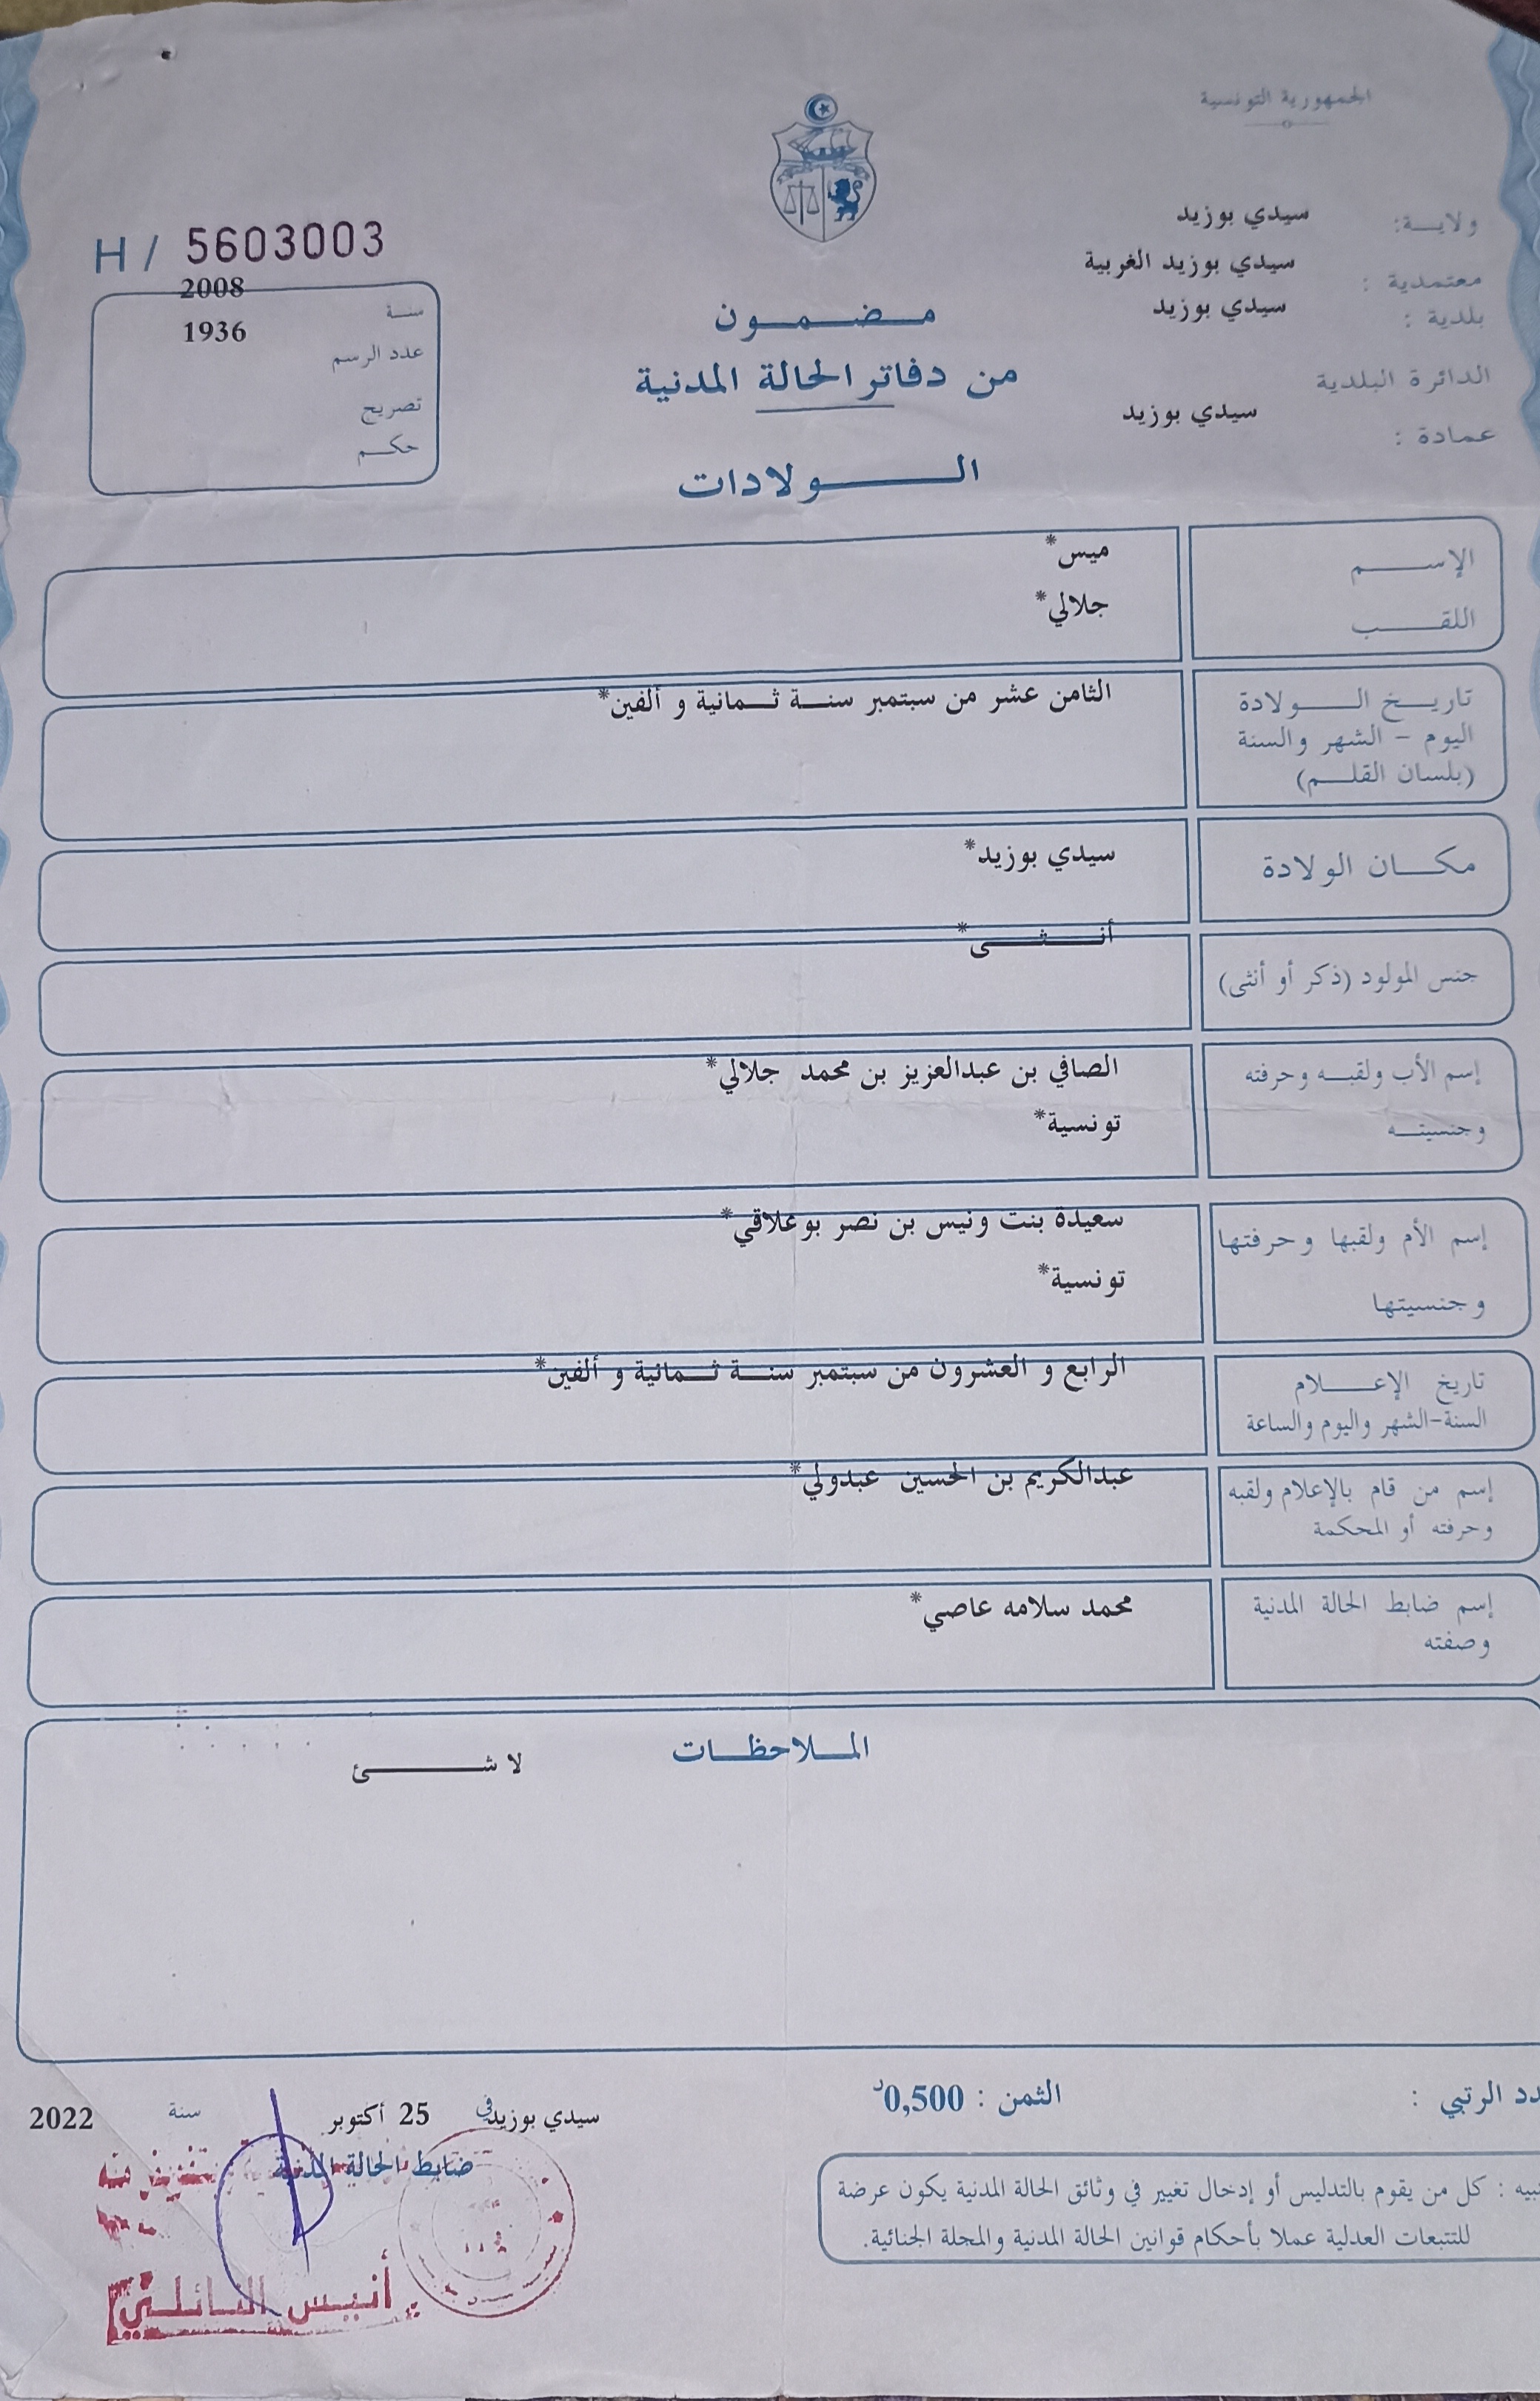 الجمهورية التونسية
ولايــة: سيدي بوزيد
معتمدية : سيدي بوزيد الغربية
بلدية : سيدي بوزيد
الدائرة البلدية
عمادة : سيدي بوزيد
H / 5603003
سنـة 2008
عدد الرسم 1936
تصريح
حكـم
مـضـمـون
من دفاتر الحالة المدنية
الـولادات
الإسـم ميس*
اللقـب جلالي*
تاريـخ الـولادة الثامن عشر من سبتمبر سنـة ثـمانية و ألفين*
اليوم - الشهر والسنة
(بلسان القلـم)
مكـان الولادة سيدي بوزيد*
جنس المولود (ذكر أو أنثى) أنـثـى*
إسم الأب ولقبـه وحرفته الصافي بن عبدالعزيز بن محمد جلالي*
وجنسيتـه تونسية*
إسم الأم ولقبها وحرفتها سعيدة بنت ونيس بن نصر بوعلاقي*
وجنسيتها تونسية*
تاريخ الإعـلام الرابع و العشرون من سبتمبر سنـة ثـمانية و ألفين*
السنة-الشهر واليوم والساعة
إسم من قام بالإعلام ولقبه عبدالكريم بن الحسين عبدولي*
وحرفته أو المحكمة
إسم ضابط الحالة المدنية محمد سلامه عاصي*
وصفته
المـلاحظـات
لا شـئ
الرتبي :
الثمن : 0,500د
سيدي بوزيد في 25 أكتوبر سنة 2022
ضابط الحالة المدنية
بتفويض منه
أنيس
: كل من يقوم بالتدليس أو إدخال تغيير في وثائق الحالة المدنية يكون عرضة
للتتبعات العدلية عملا بأحكام قوانين الحالة المدنية والمجلة الجنائية.